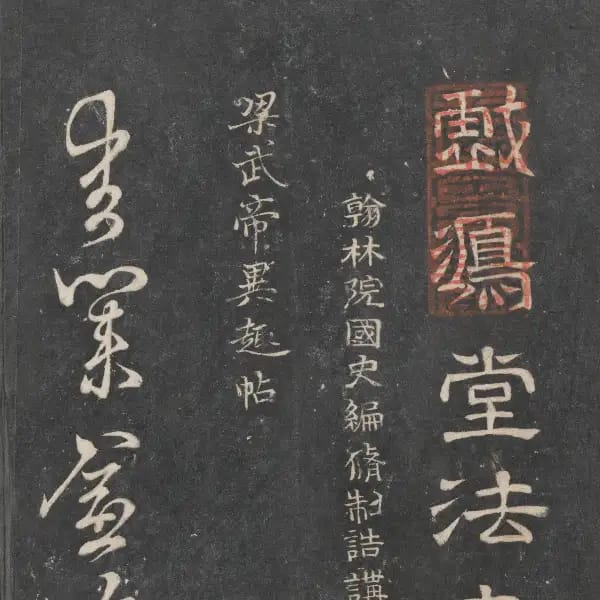 戲鴻堂法
翰林院國史編脩制誥講
梁武帝異趣帖
愛業益